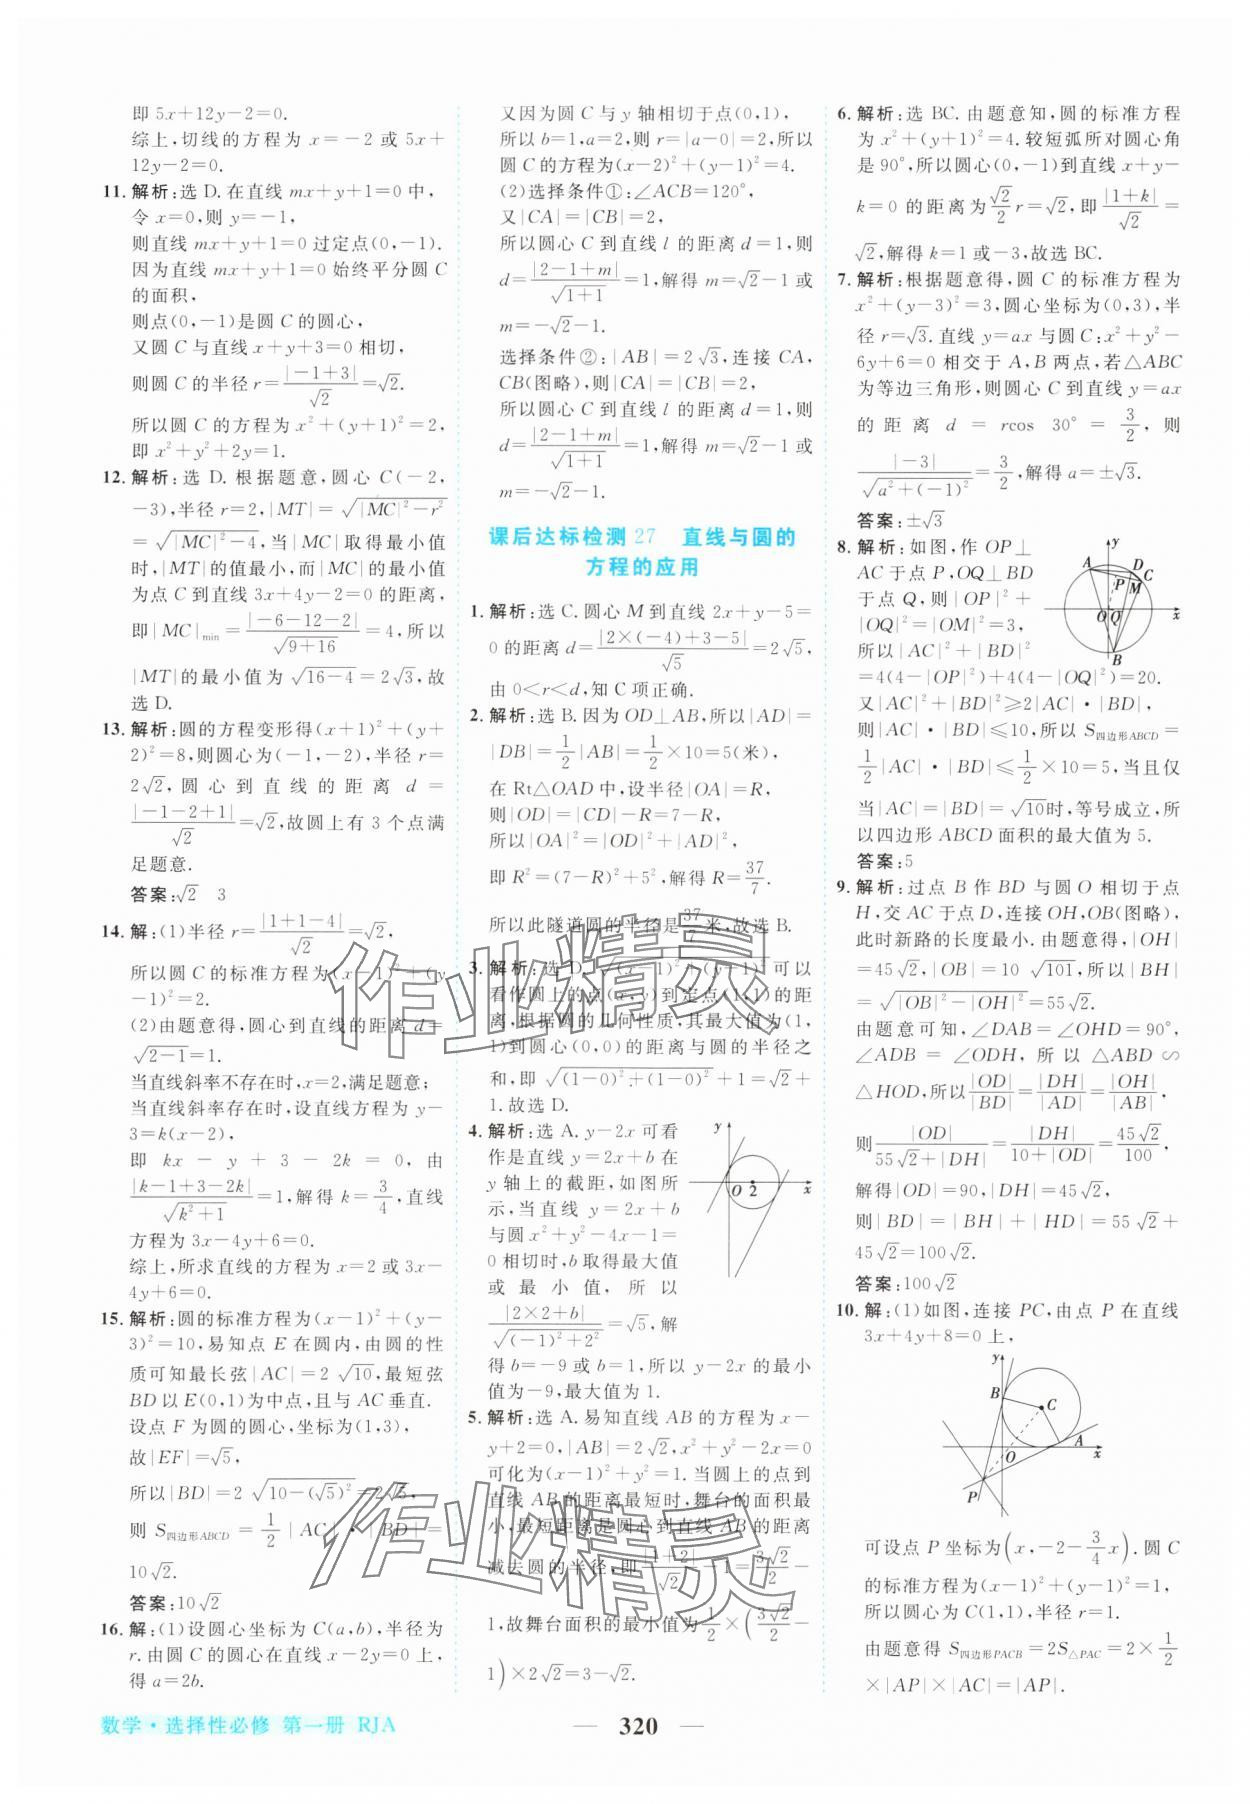 即 5x+12y−2=0.
综上,切线的方程为 x=−2 或 5x+
12y−2=0.
11. 解析:选 D. 在直线 mx+y+1=0 中,
令 x=0,则 y=−1,
则直线 mx+y+1=0 过定点(0,−1).
因为直线 mx+y+1=0 始终平分圆 C
的面积,
则点(0,−1)是圆 C 的圆心,
又圆 C 与直线 x+y+3=0 相切,
则圆 C 的半径 r=|−1+3|/√2=√2.
所以圆 C 的方程为 x²+(y+1)²=2,
即 x²+y²+2y=1.
12. 解析:选 D. 根据题意,圆心 C(−2,
−3),半径 r=2,|MT|=√(|MC|²−r²)
=√(|MC|²−4),当|MC|取得最小值
时,|MT|的值最小,而|MC|的最小值
为点 C 到直线 3x+4y−2=0 的距离,
即|MC|min=|−6−12−2|/√(9+16)=4,所以
|MT|的最小值为√(16−4)=2√3,故
选 D.
13. 解析:圆的方程变形得(x+1)²+(y+
2)²=8,则圆心为(−1,−2),半径 r=
2√2,圆心到直线的距离 d=
|−1−2+1|/√2=√2,故圆上有 3 个点满
足题意.
答案:√2 3
14. 解:(1)半径 r=|1+1−4|/√2=√2,
所以圆 C 的标准方程为(x−1)²+(y
−1)²=2.
(2)由题意得,圆心到直线的距离 d=
√(2−1)=1.
当直线斜率不存在时,x=2,满足题意;
当直线斜率存在时,设直线方程为 y−
3=k(x−2),
即 kx−y+3−2k=0,由
|k−1+3−2k|/√(k²+1)=1,解得 k=3/4,直线
方程为 3x−4y+6=0.
综上,所求直线的方程为 x=2 或 3x−
4y+6=0.
15. 解析:圆的标准方程为(x−1)²+(y−
3)²=10,易知点 E 在圆内,由圆的性
质可知最长弦|AC|=2√10,最短弦
BD 以 E(0,1)为中点,且与 AC 垂直.
设点 F 为圆的圆心,坐标为(1,3),
故|EF|=√5,
所以|BD|=2√(10−(√5)²)=2√5,
则 S四边形ABCD=1/2|AC|·|BD|=
10√2.
答案:10√2
16. 解:(1)设圆心坐标为 C(a,b),半径为
r. 由圆 C 的圆心在直线 x−2y=0 上,
得 a=2b.
又因为圆 C 与 y 轴相切于点(0,1),
所以 b=1,a=2,则 r=|a−0|=2,所以
圆 C 的方程为(x−2)²+(y−1)²=4.
(2)选择条件①:∠ACB=120°,
又|CA|=|CB|=2,
所以圆心 C 到直线 l 的距离 d=1,则
d=|2−1+m|/√(1+1)=1,解得 m=√2−1 或
m=−√2−1.
选择条件②:|AB|=2√3,连接 CA,
CB(图略),则|CA|=|CB|=2,
所以圆心 C 到直线 l 的距离 d=1,则
d=|2−1+m|/√(1+1)=1,解得 m=√2−1 或
m=−√2−1.
课后达标检测 27 直线与圆的
方程的应用
1. 解析:选 C. 圆心 M 到直线 2x+y−5=
0 的距离 d=|2×(−4)+3−5|/√5=2√5,
由 0<r<d,知 C 项正确.
2. 解析:选 B. 因为 OD⊥AB,所以|AD|=
|DB|=1/2|AB|=1/2×10=5(米),
在 Rt△OAD 中,设半径|OA|=R,
则|OD|=|CD|−R=7−R,
所以|OA|²=|OD|²+|AD|²,
即 R²=(7−R)²+5²,解得 R=37/7.
所以此隧道圆的半径是37/7米,故选 B.
3. 解析:选 D. √((x−1)²+(y−1)²)可以
看作圆上的点(x,y)到定点(1,1)的距
离,根据圆的几何性质,其最大值为(1,
1)到圆心(0,0)的距离与圆的半径之
和,即√((1−0)²+(1−0)²)+1=√2+
1. 故选 D.
4. 解析:选 A. y−2x 可看
作是直线 y=2x+b 在
y 轴上的截距,如图所
示,当直线 y=2x+b
与圆 x²+y²−4x−1=
0 相切时,b 取得最大值
或最小值,所以
|2×2+b|/√((−1)²+2²)=√5,解
得 b=−9 或 b=1,所以 y−2x 的最小
值为−9,最大值为 1.
y
O 2 x
5. 解析:选 A. 易知直线 AB 的方程为 x−
y+2=0,|AB|=2√2,x²+y²−2x=0
可化为(x−1)²+y²=1. 当圆上的点到
直线 AB 的距离最短时,舞台的面积最
小,最短距离是圆心到直线 AB 的距离
减去圆的半径,即|1+2|/√2−1=3√2/2−
1,故舞台面积的最小值为1/2×(3√2/2−
1)×2√2=3−√2.
6. 解析:选 BC. 由题意知,圆的标准方程
为 x²+(y+1)²=4. 较短弧所对圆心角
是 90°,所以圆心(0,−1)到直线 x+y−
k=0 的距离为√2/2 r=√2,即|1+k|/√2=
√2,解得 k=1 或−3,故选 BC.
7. 解析:根据题意得,圆 C 的标准方程为
x²+(y−3)²=3,圆心坐标为(0,3),半
径 r=√3. 直线 y=ax 与圆 C:x²+y²−
6y+6=0 相交于 A,B 两点,若△ABC
为等边三角形,则圆心 C 到直线 y=ax
的距离 d=rcos 30°=3/2,则
|−3|/√(a²+(−1)²)=3/2,解得 a=±√3.
答案:±√3
8. 解析:如图,作 OP⊥
AC 于点 P,OQ⊥BD
于点 Q,则|OP|²+
|OQ|²=|OM|²=3,
所以|AC|²+|BD|²
=4(4−|OP|²)+4(4−|OQ|²)=20.
又|AC|²+|BD|²≥2|AC|·|BD|,
则|AC|·|BD|≤10,所以 S四边形ABCD=
1/2|AC|·|BD|≤1/2×10=5,当且仅
当|AC|=|BD|=√10时,等号成立,所
以四边形 ABCD 面积的最大值为 5.
答案:5
y
A D C
P M
O Q x
B
9. 解析:过点 B 作 BD 与圆 O 相切于点
H,交 AC 于点 D,连接 OH,OB(图略),
此时新路的长度最小. 由题意得,|OH|
=45√2,|OB|=10√101,所以|BH|
=√(|OB|²−|OH|²)=55√2.
由题意可知,∠DAB=∠OHD=90°,
∠ADB=∠ODH,所以△ABD∽
△HOD,所以|OD|/|BD|=|DH|/|AD|=|OH|/|AB|,
则|OD|/(55√2+|DH|)=|DH|/(10+|OD|)=45√2/100,
解得|OD|=90,|DH|=45√2,
则|BD|=|BH|+|HD|=55√2+
45√2=100√2.
答案:100√2
10. 解:(1)如图,连接 PC,由点 P 在直线
3x+4y+8=0 上,
y
B C
O A x
P
可设点 P 坐标为(x,−2−3/4x). 圆 C
的标准方程为(x−1)²+(y−1)²=1,
所以圆心为 C(1,1),半径 r=1.
由题意得 S四边形PACB=2S△PAC=2×1/2
×|AP|×|AC|=|AP|.
数学·选择性必修 第一册 RJA
— 320 —
作业精灵
作业精灵